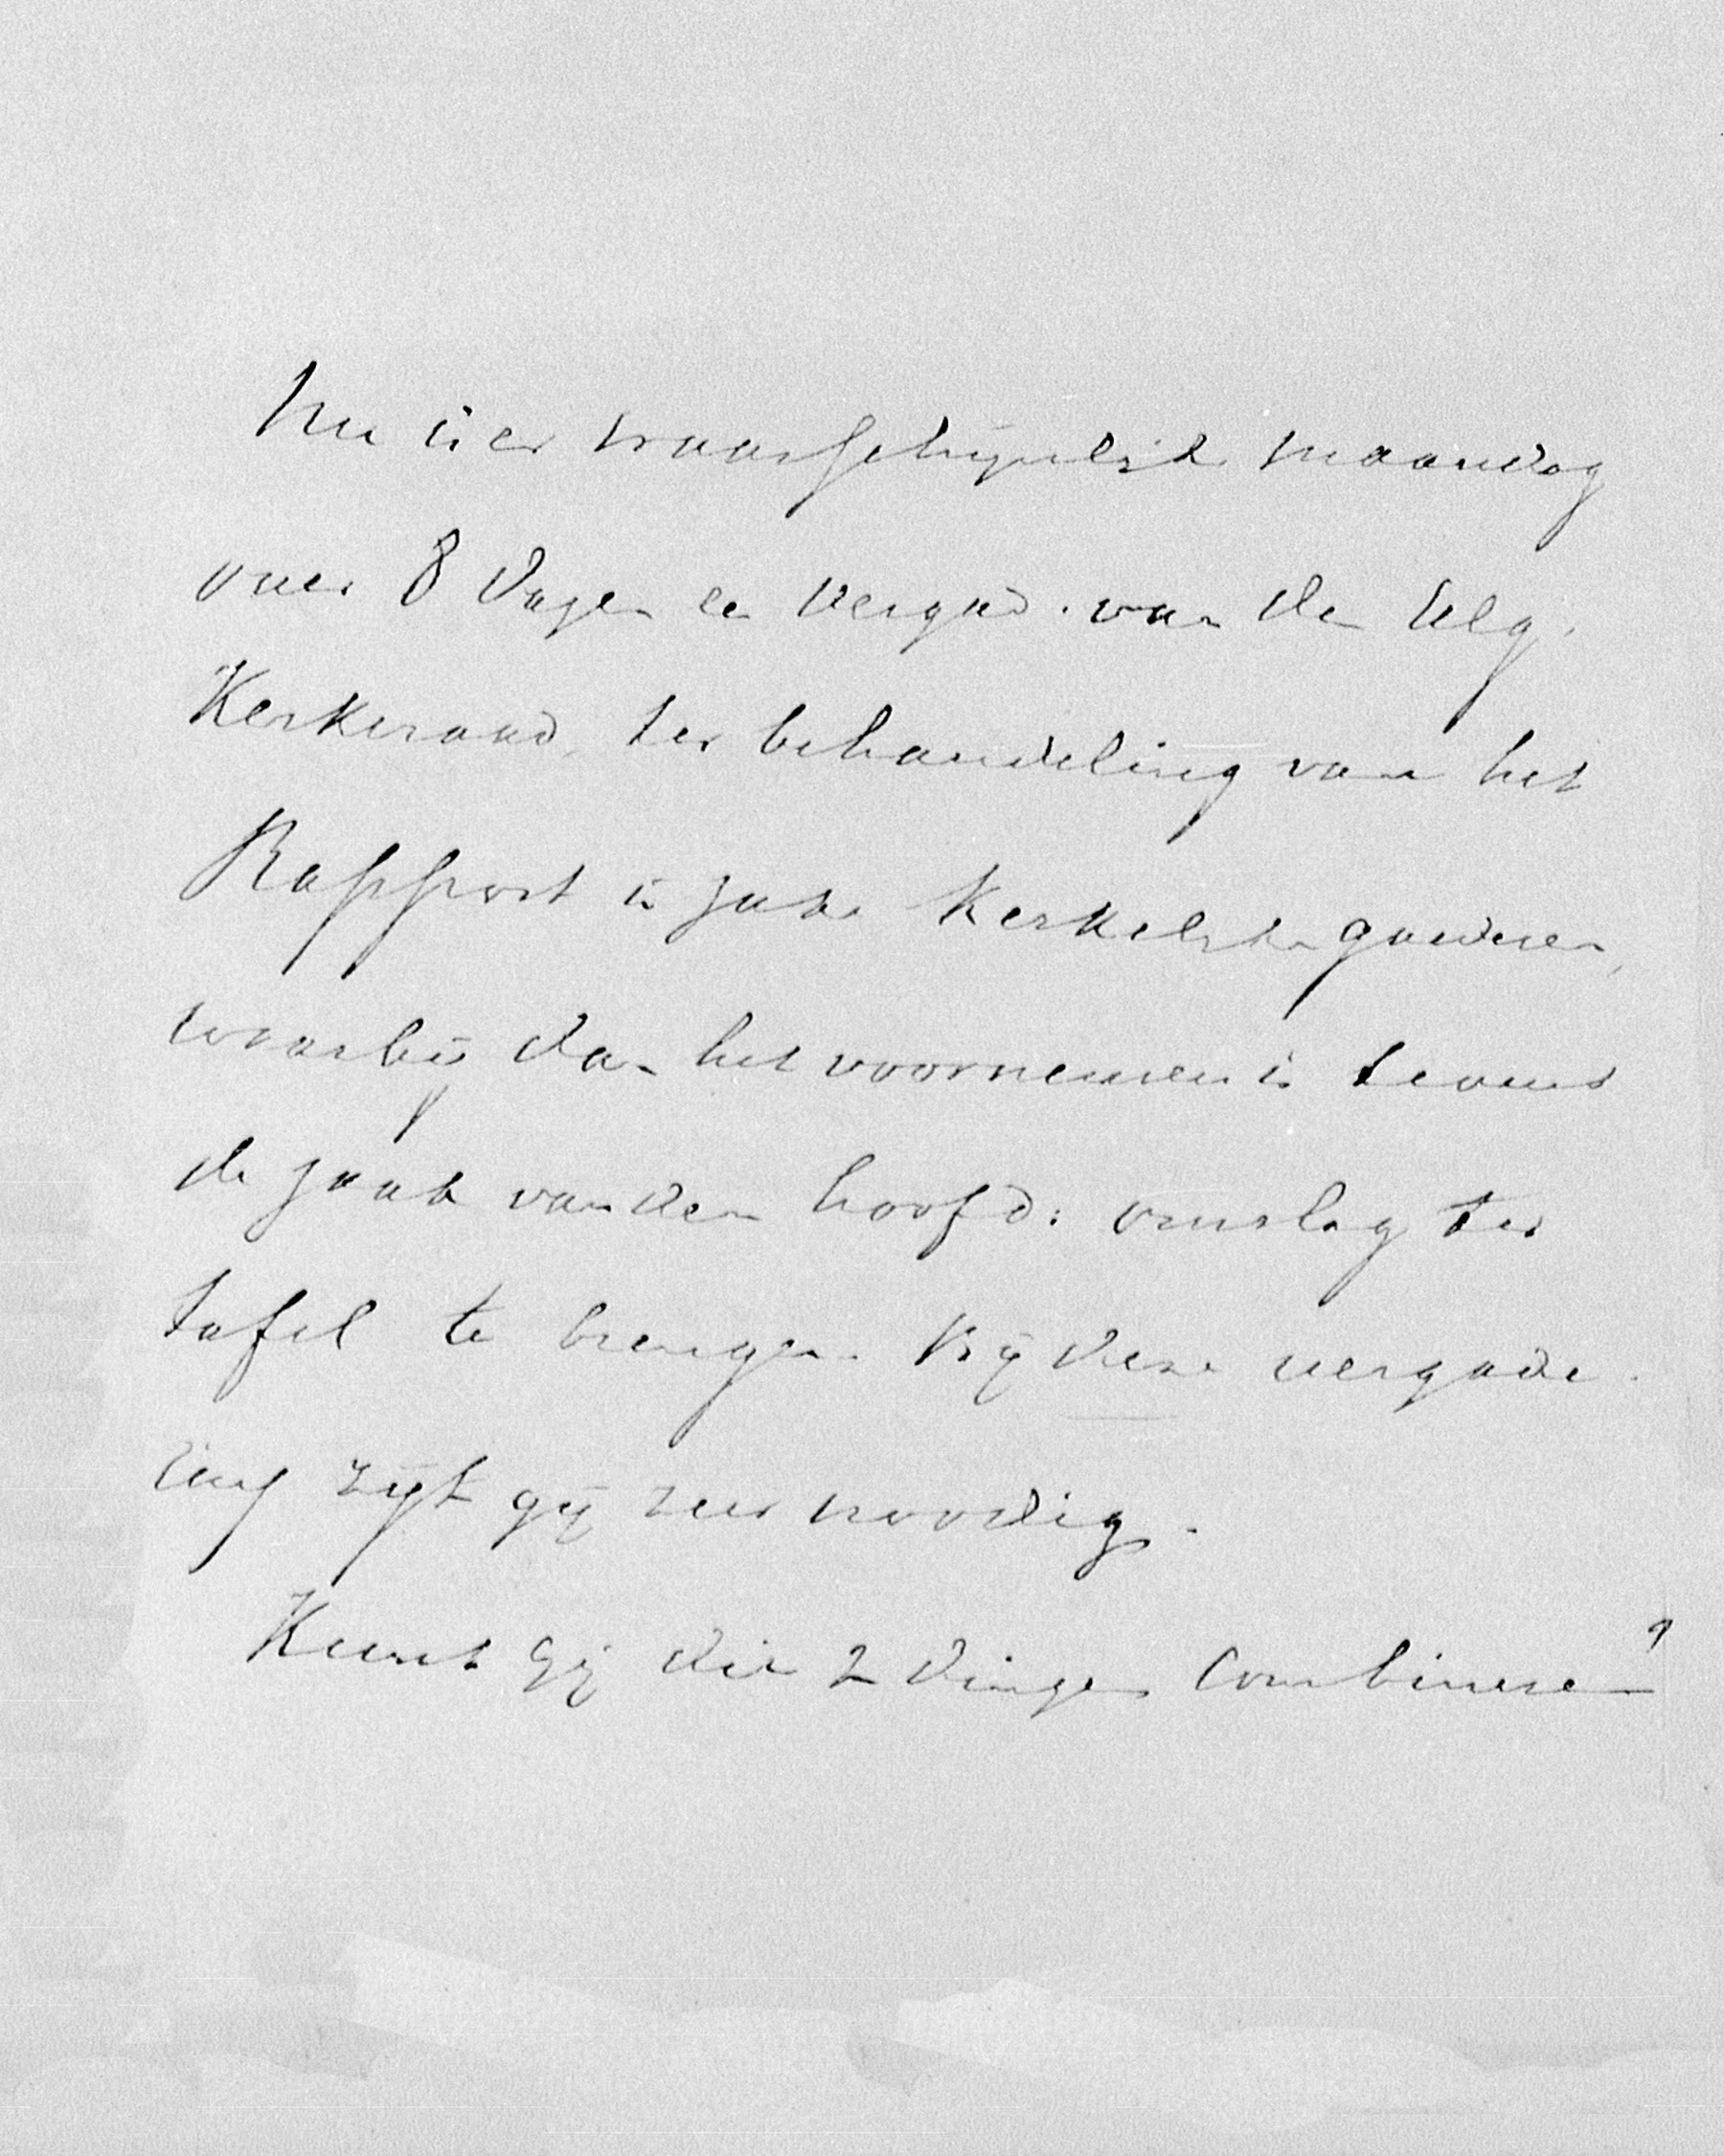 Nu is er waarschijnlijk maandag
over 8 dagen een vergad. van den Alg.
Kerkeraad, ter behandeling van het
Rapport in zake Kerkelijke goederen,
waarbij dan het voornemen is tevens
de zaak van den hoofd: omslag ter
tafel te brengen. Bij deze vergade-
ring zijt gij zeer noodig.
Kunt gij die 2 dingen combineren?